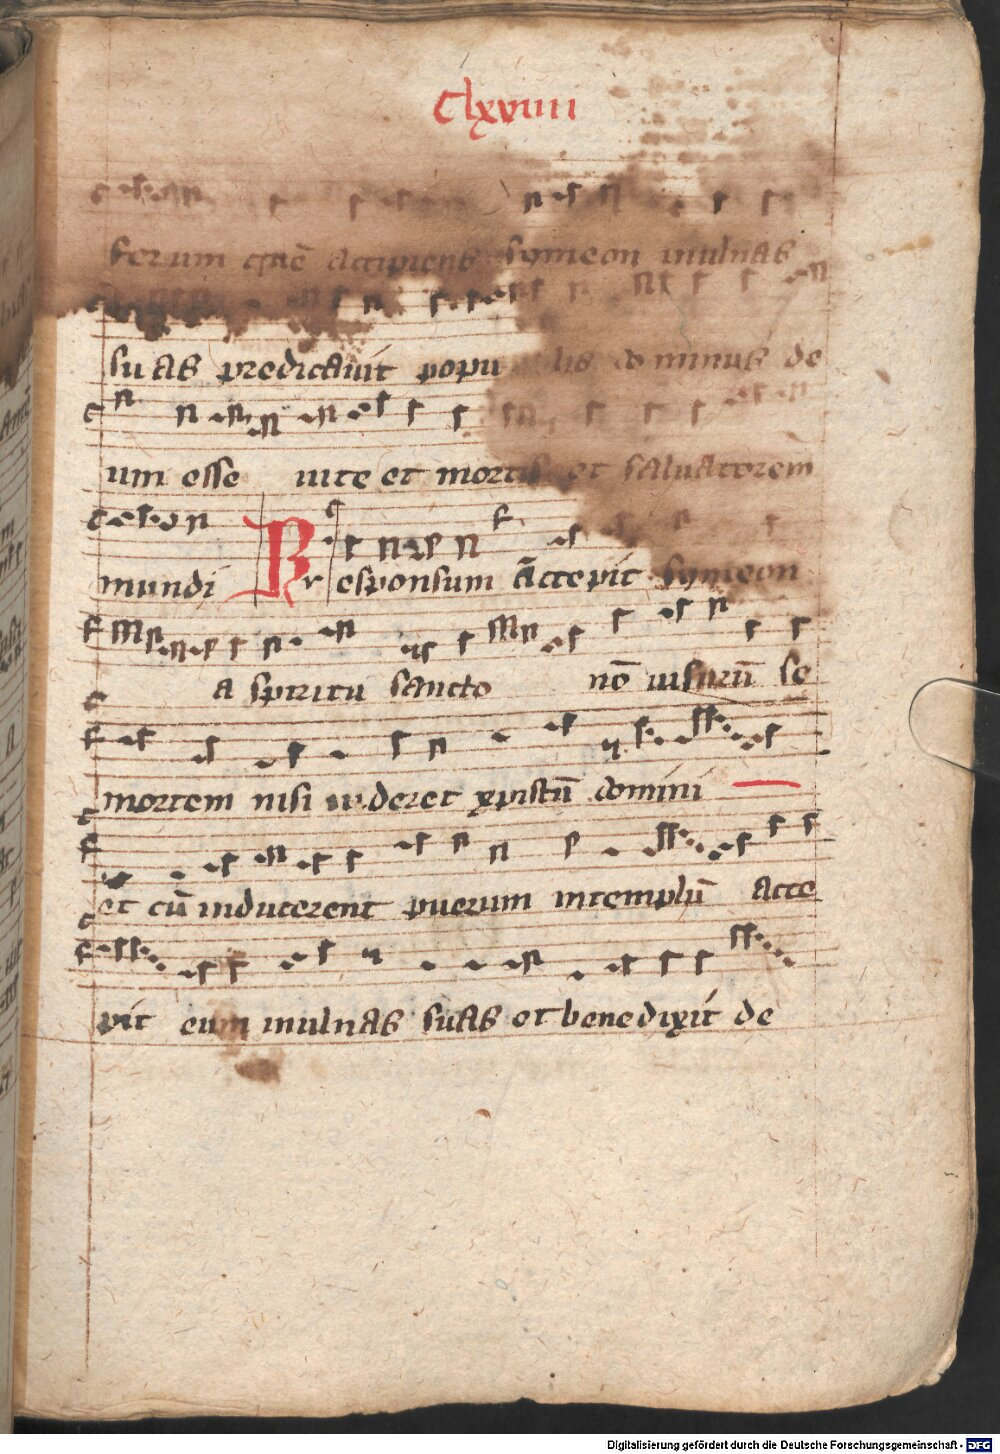 Clxviiii
ferum quē accipiens symeon inulnas
suas predicavit popu lis dominus de
um esse vite et mortis et salvatorem
mundi Responsum Accepit Symeon
a spiritu sancto nō visurū se
mortem nisi videret xpistū domini
et cū inducerent puerum intemplū acce
pit eum inulnas suas et benedixit de
Digitalisierung gefördert durch die Deutsche Forschungsgemeinschaft - DFG